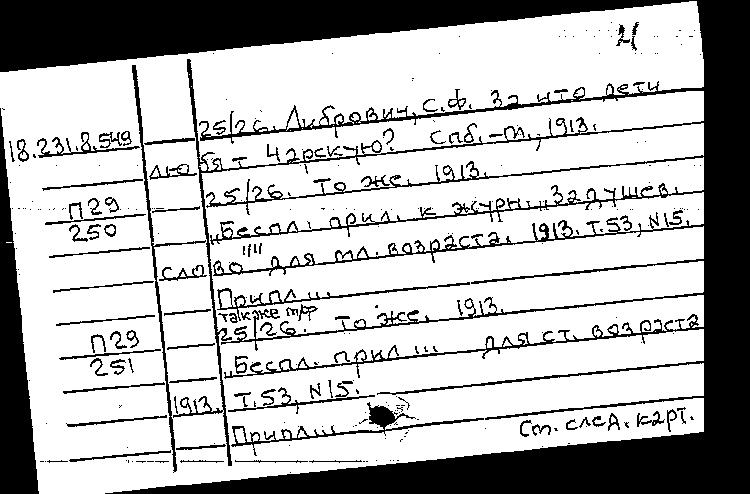 21
25/26. Либрович, С.Ф. За что дети
18.231.8.549
любят Чарскую? Спб.-М., 1913.
25/26. То же. 1913.
П29
250
„Беспл. прил. к журн. „Задушев.
слово"" для мл. возраста. 1913. Т.53, N15.
Припл...
также м/ф
25/26. То же. 1913.
П29
251
„Беспл. прил... для ст. возраста
1913. Т.53, N15.
Припл...
См. след. карт.